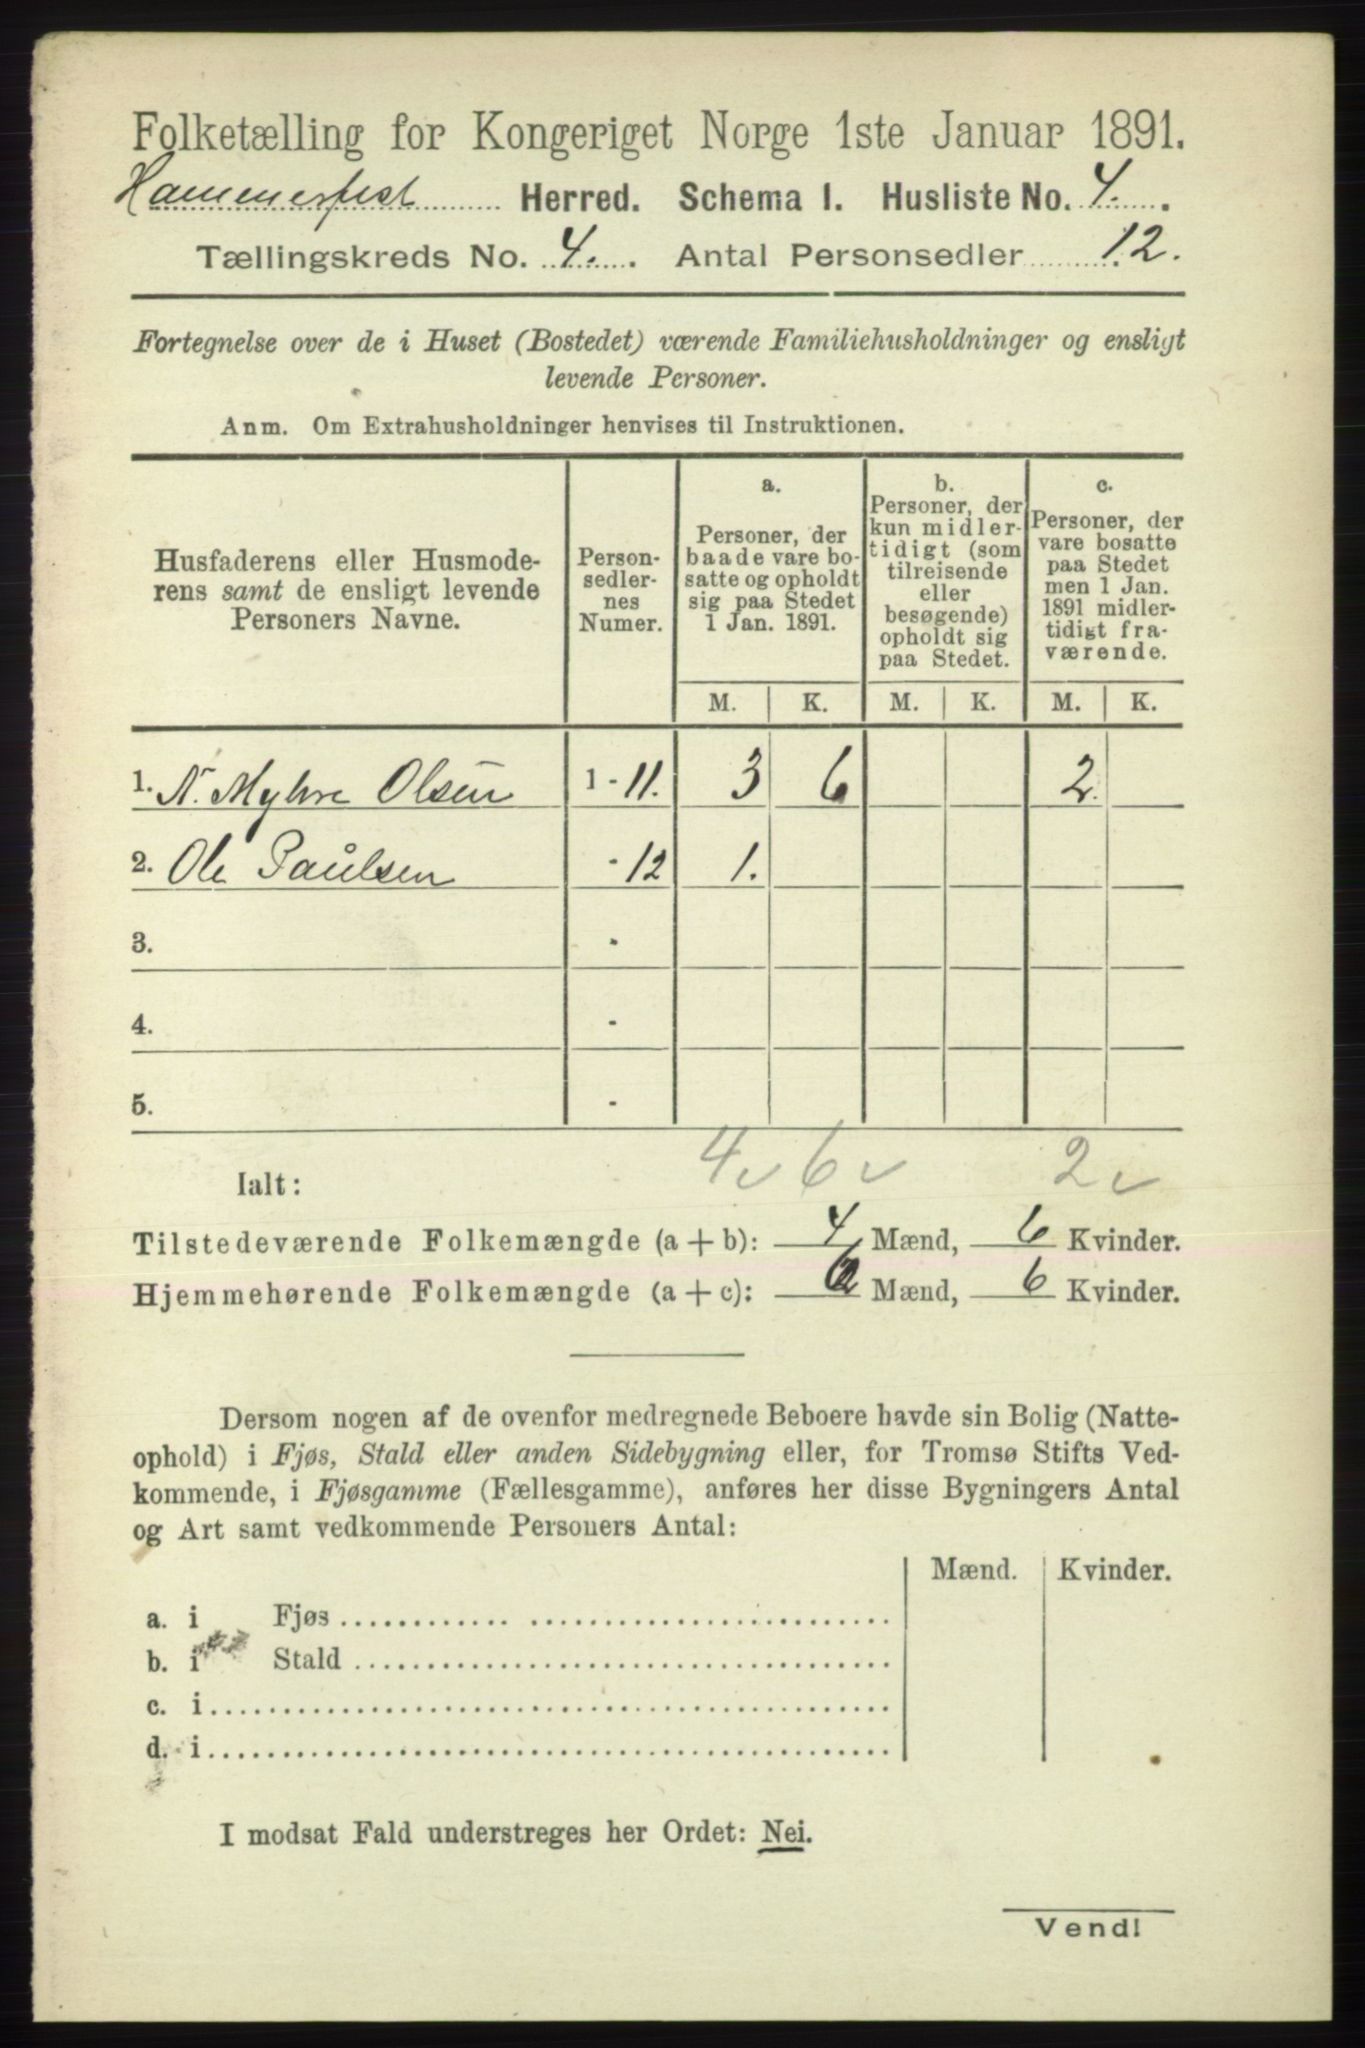 Folketælling for Kongeriget Norge 1ste Januar 1891.
Hammerfest Herred. Schema I. Husliste No. 4.
Tællingskreds No. 4. Antal Personsedler 12.
Fortegnelse over de i Huset (Bostedet) værende Familiehusholdninger og ensligt
levende Personer.
Anm. Om Extrahusholdninger henvises til Instruktionen.
Husfaderens eller Husmode-
rens samt de ensligt levende
Personers Navne.
Person-
sedler-
nes
Numer.
a.
Personer, der
baade vare bo-
satte og opholdt
sig paa Stedet
1 Jan. 1891.
b.
Personer, der
kun midler-
tidigt (som
tilreisende
eller
besøgende)
opholdt sig
paa Stedet.
c.
Personer, der
vare bosatte
paa Stedet
men 1 Jan.
1891 midler-
tidigt fra-
værende.
M. K. M. K. M. K.
1. N. Myhre Olsen 1 - 11. 3 6 2.
2. Ole Paulsen - 12 1.
3. -
4. -
5. -
4 6 2
Ialt:
Tilstedeværende Folkemængde (a + b): 4 Mænd, 6 Kvinder.
Hjemmehørende Folkemængde (a + c): 6 Mænd, 6 Kvinder.
Dersom nogen af de ovenfor medregnede Beboere havde sin Bolig (Natte-
ophold) i Fjøs, Stald eller anden Sidebygning eller, for Tromsø Stifts Ved-
kommende, i Fjøsgamme (Fællesgamme), anføres her disse Bygningers Antal
og Art samt vedkommende Personers Antal:
Mænd. Kvinder.
a. i Fjøs
b. i Stald
c. i
d. i
I modsat Fald understreges her Ordet: Nei.
Vend!